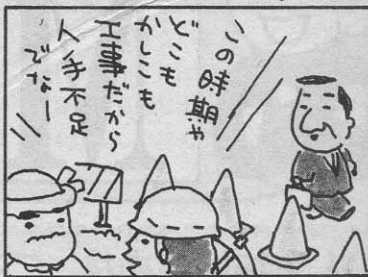 この時期や
どこも
かしこも
工事だから
人手不足
でなー